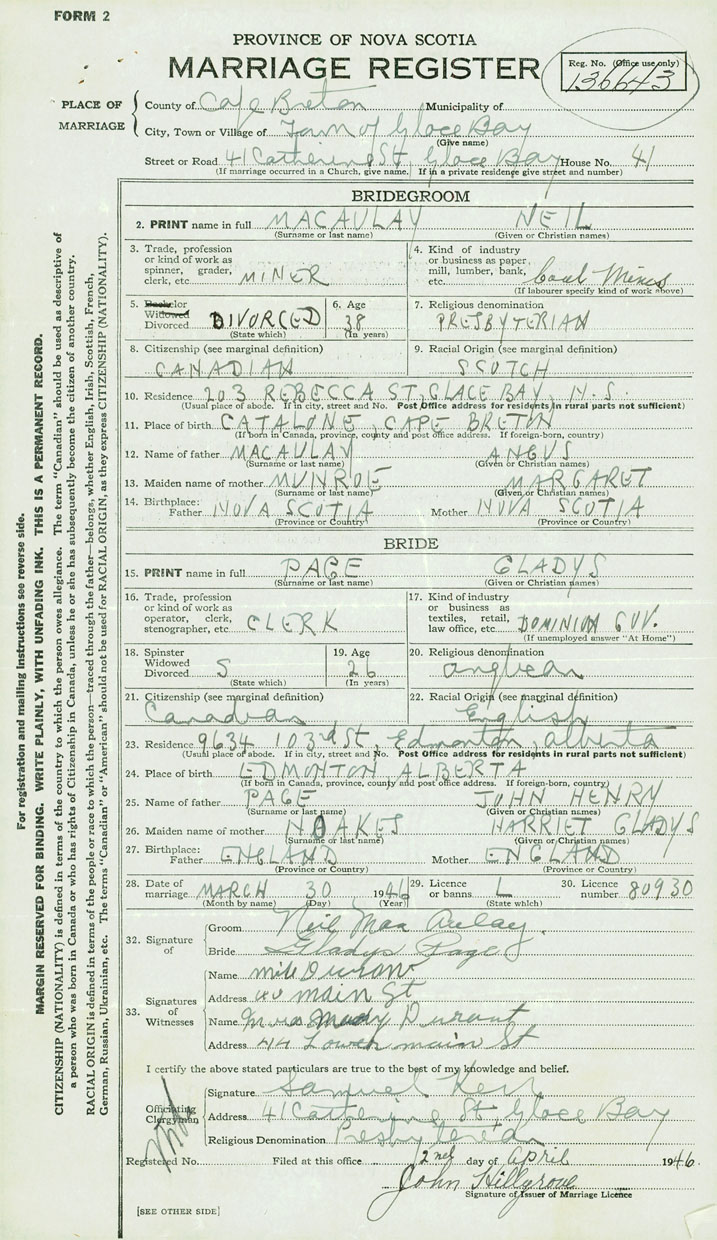 FORM 2
PROVINCE OF NOVA SCOTIA
MARRIAGE REGISTER
Reg. No. (Office use only)
136643
PLACE OF MARRIAGE
County of Cape Breton Municipality of
City, Town or Village of Town of Glace Bay
(Give name)
Street or Road 41 Catherine St, Glace Bay House No. 41
(If marriage occurred in a Church, give name. If in a private residence give street and number)
BRIDEGROOM
2. PRINT name in full MACAULAY NEIL
(Surname or last name) (Given or Christian names)
3. Trade, profession or kind of work as spinner, grader, clerk, etc. MINER
4. Kind of industry or business as paper mill, lumber, bank, etc. Coal Mines
(If labourer specify kind of work above)
5. Bachelor Widowed Divorced DIVORCED
(State which)
6. Age 38
(In years)
7. Religious denomination
PRESBYTERIAN
8. Citizenship (see marginal definition)
CANADIAN
9. Racial Origin (see marginal definition)
SCOTCH
10. Residence 203 REBECCA ST, GLACE BAY, N.S.
(Usual place of abode. If in city, street and No. Post Office address for residents in rural parts not sufficient)
11. Place of birth CATALONE, CAPE BRETON
(If born in Canada, province, county and post office address. If foreign-born, country)
12. Name of father MACAULAY ANGUS
(Surname or last name) (Given or Christian names)
13. Maiden name of mother MUNROE MARGARET
(Surname or last name) (Given or Christian names)
14. Birthplace: Father NOVA SCOTIA Mother NOVA SCOTIA
(Province or Country) (Province or Country)
BRIDE
15. PRINT name in full PAGE GLADYS
(Surname or last name) (Given or Christian names)
16. Trade, profession or kind of work as operator, clerk, stenographer, etc. CLERK
17. Kind of industry or business as textiles, retail, law office, etc. DOMINION GUV.
(If unemployed answer "At Home")
18. Spinster Widowed Divorced S
(State which)
19. Age 26
(In years)
20. Religious denomination
Anglican
21. Citizenship (see marginal definition)
Canadian
22. Racial Origin (see marginal definition)
English
23. Residence 9634 103rd St, Edmonton, Alberta
(Usual place of abode. If in city, street and No. Post Office address for residents in rural parts not sufficient)
24. Place of birth EDMONTON, ALBERTA
(If born in Canada, province, county and post office address. If foreign-born, country)
25. Name of father PAGE JOHN HENRY
(Surname or last name) (Given or Christian names)
26. Maiden name of mother NOAKES HARRIET GLADYS
(Surname or last name) (Given or Christian names)
27. Birthplace: Father ENGLAND Mother ENGLAND
(Province or Country) (Province or Country)
28. Date of marriage MARCH 30 1946
(Month by name) (Day) (Year)
29. Licence or banns L
(State which)
30. Licence number 80930
32. Signature of
Groom Neil MacAulay.
Bride Gladys Page
33. Signatures of Witnesses
Name
Address main St
Name Durant
Address 44 Lower main St
I certify the above stated particulars are true to the best of my knowledge and belief.
Officiating Clergyman
Signature Samuel Kerr
Address 41 Catherine St, Glace Bay
Religious Denomination Presbyterian
Registered No. Filed at this office 2nd day of April 1946
John Hillgrove
Signature of Issuer of Marriage Licence
[SEE OTHER SIDE]
For registration and mailing instructions see reverse side.
MARGIN RESERVED FOR BINDING. WRITE PLAINLY, WITH UNFADING INK. THIS IS A PERMANENT RECORD.
CITIZENSHIP (NATIONALITY) is defined in terms of the country to which the person owes allegiance. The term "Canadian" should be used as descriptive of
a person who was born in Canada or who has rights of Citizenship in Canada, unless he or she has subsequently become the citizen of another country.
RACIAL ORIGIN is defined in terms of the people or race to which the person—traced through the father—belongs, whether English, Irish, Scottish, French,
German, Russian, Ukrainian, etc. The terms "Canadian" or "American" should not be used for RACIAL ORIGIN, as they express CITIZENSHIP (NATIONALITY).